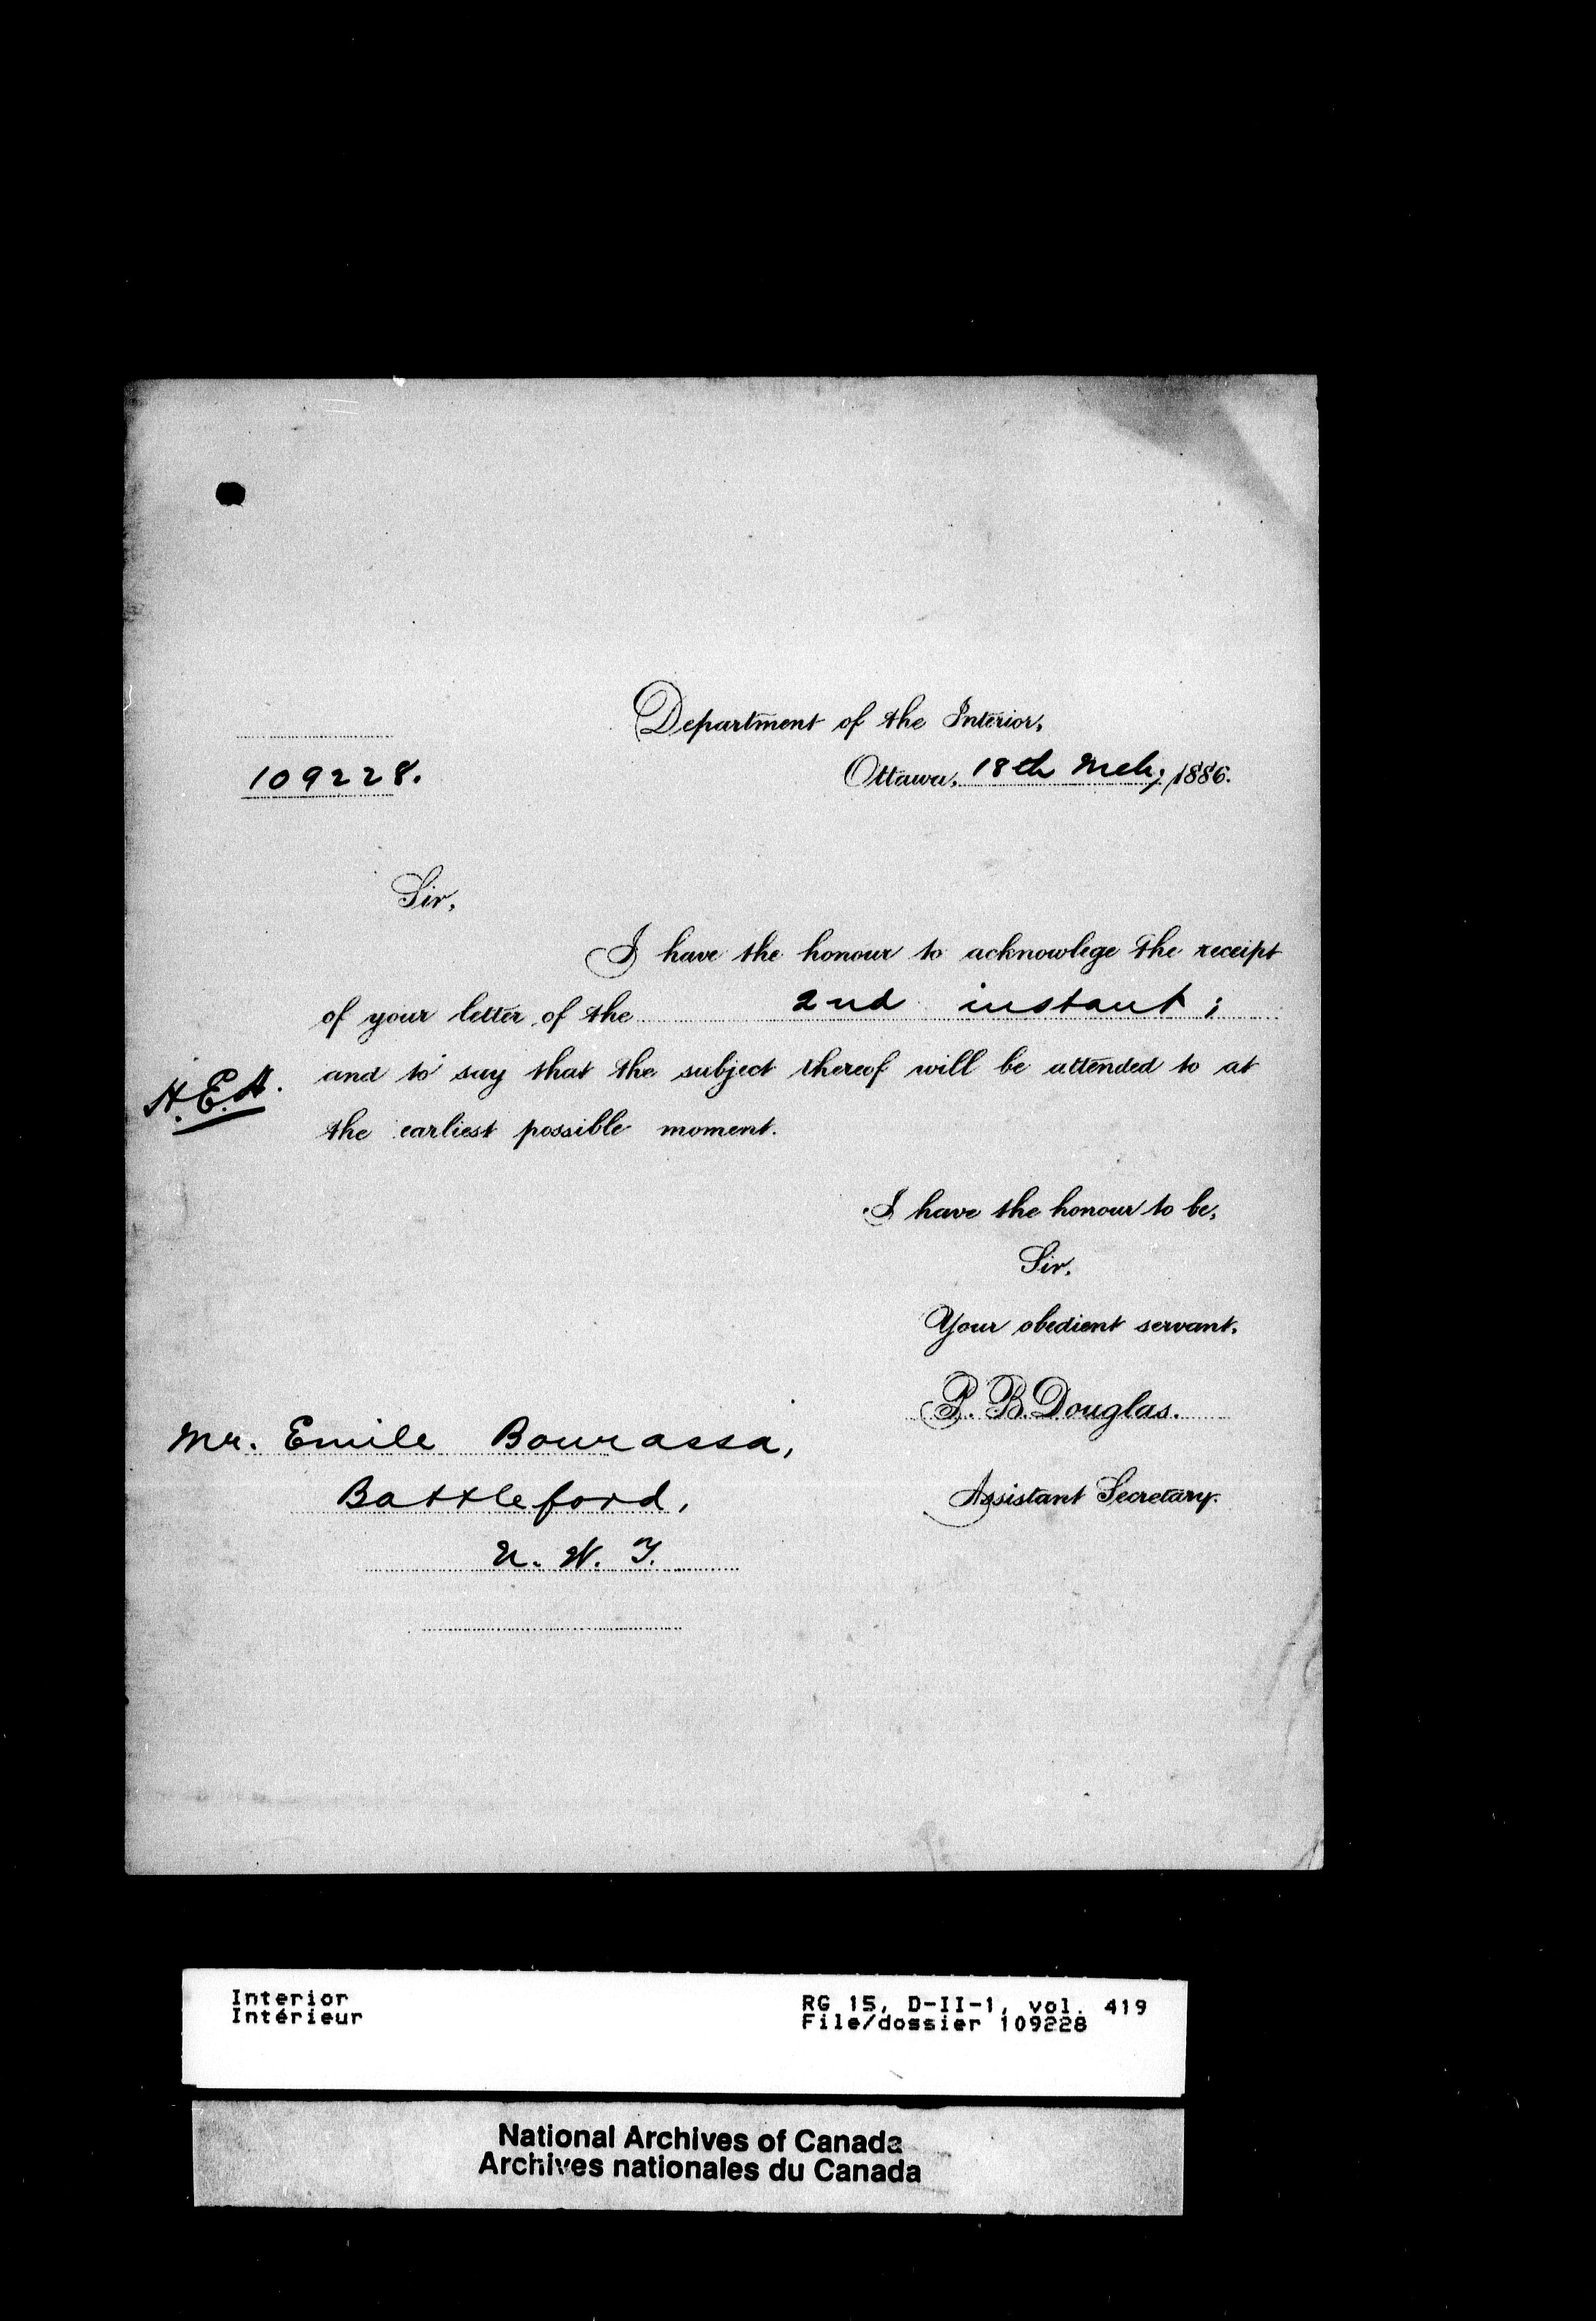 Department of the Interior,
109228.
Ottawa, 18th Mch, 1886.
Sir,
I have the honour to acknowlege the receipt
of your letter of the 2nd instant;
and to say that the subject thereof will be attended to at
H.E.H.
the earliest possible moment.
I have the honour to be,
Sir,
Your obedient servant,
P. B. Douglas.
Mr. Emile Bourassa,
Battleford,
Assistant Secretary.
N. W. T.
Interior
Intérieur
RG 15, D-II-1, vol. 419
File/dossier 109228
National Archives of Canada
Archives nationales du Canada